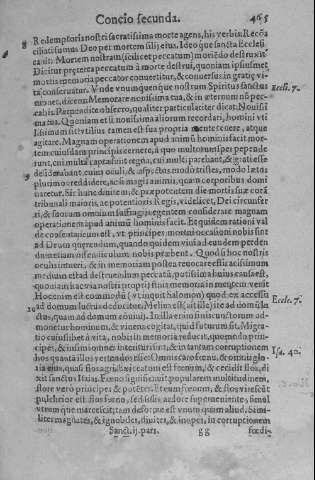 Concio secunda. 465
8 Redemptoris nostri sacratissima morte agens, his verbis: Recõ
ciliati sumus Deo per mortem filij eius. Ideoque sancta Ecclesi
Mortem nostram (scilicet peccatum) moriẽdo destruxit.
Dicitur præterea peccatum à morte destrui, quoniam ipsiusmet
mortis memoria peccator conuertitur, & conuersus in gratię vi
ta conseruatur. Vnde vnumquenque nostrum Spiritus sanctus
monet, dicens: Memorare nouissima tua, & in æternum nõ pec-
Eccle. 7.
cabis. Perpendite obsecro, qualiter particulariter dicat: Nouissi
ma tua. Quoniam etsi nouissima aliorum recordari, homini vti
lissimum sit: vtilius tamen est sua propria mente tenere, atque
agitare. Magnam operationem apud animũ hominis facit mor-
tem cuiusdam principis cernere, à quo multorum spes pende-
runt, cui multa captasunt regna, cui multi parebant, & igratiesse
desiderabant, cuius oculi, & aspectus modò tristes, modo lætos
9
plurimos reddidere, ac si magis animis, quàm corporibus domi
naretur. Sic huncdiuitem, & præpotentem die mortis suæ corã
tribunali maioris, ac potentioris Regis, videlicet, Dei circunfer
ri, & suorum omnium suffragijs egentem considerare magnam
operationem apud animũ hominis facit. Et quidem rationi val
de consentaneum est, vt principes mortui occasioni nobis sint
ad Deum quærendum, quando quidem viui ad eundem perden
dum etiam offendiculum nobis præbent. Quòd si hoc nostris
oculis inueri, & in memoriam postea reuocare est iacissimum
medium est ad destruendum peccatũ, potissima huius causa est,
quoniam hac via nostri proprij finis memoria in mentem venit.
Hoc enim est commodũ (vt inquit Salomon) quod ex accessu
ad domum luctus deducitur. Melius est, ait ille, ite ad domũ lu-
Eccle. 7.
10
ctus, quàm ad domum cõuiuij. In illa enim finis cunctorum ad-
monetur hominum, & viuens cogitat, quid futurum sit. Migra-
tio cuiuslibet à vita, nobis in memoria reducit, quomodo princi-
pes, & infimi omnes interituri sint, & in tantam corruptionem
hos quanta illos vertendos esse. Omnis caro fœnum, & omnis glo
Isa. 40.
ria eius, quasi flos agri. Exiccatum est fœnum, & cecidit flos, di-
xit sanctus Isaias. Fœno significauit popularem multitudinem,
flore verò principes & potẽtes. Etenim fœnum, & flos vt si est
pulchrior est flos fœno, sed si illis ardore superueniente, simul
vtrumque marcescit, tam deso: quæ est vnum quim aliud. Simi-
liter magnates, & ignobiles, diuites, & inopes, in corruptionem
Sanct. ij. pars. gg fœdis-